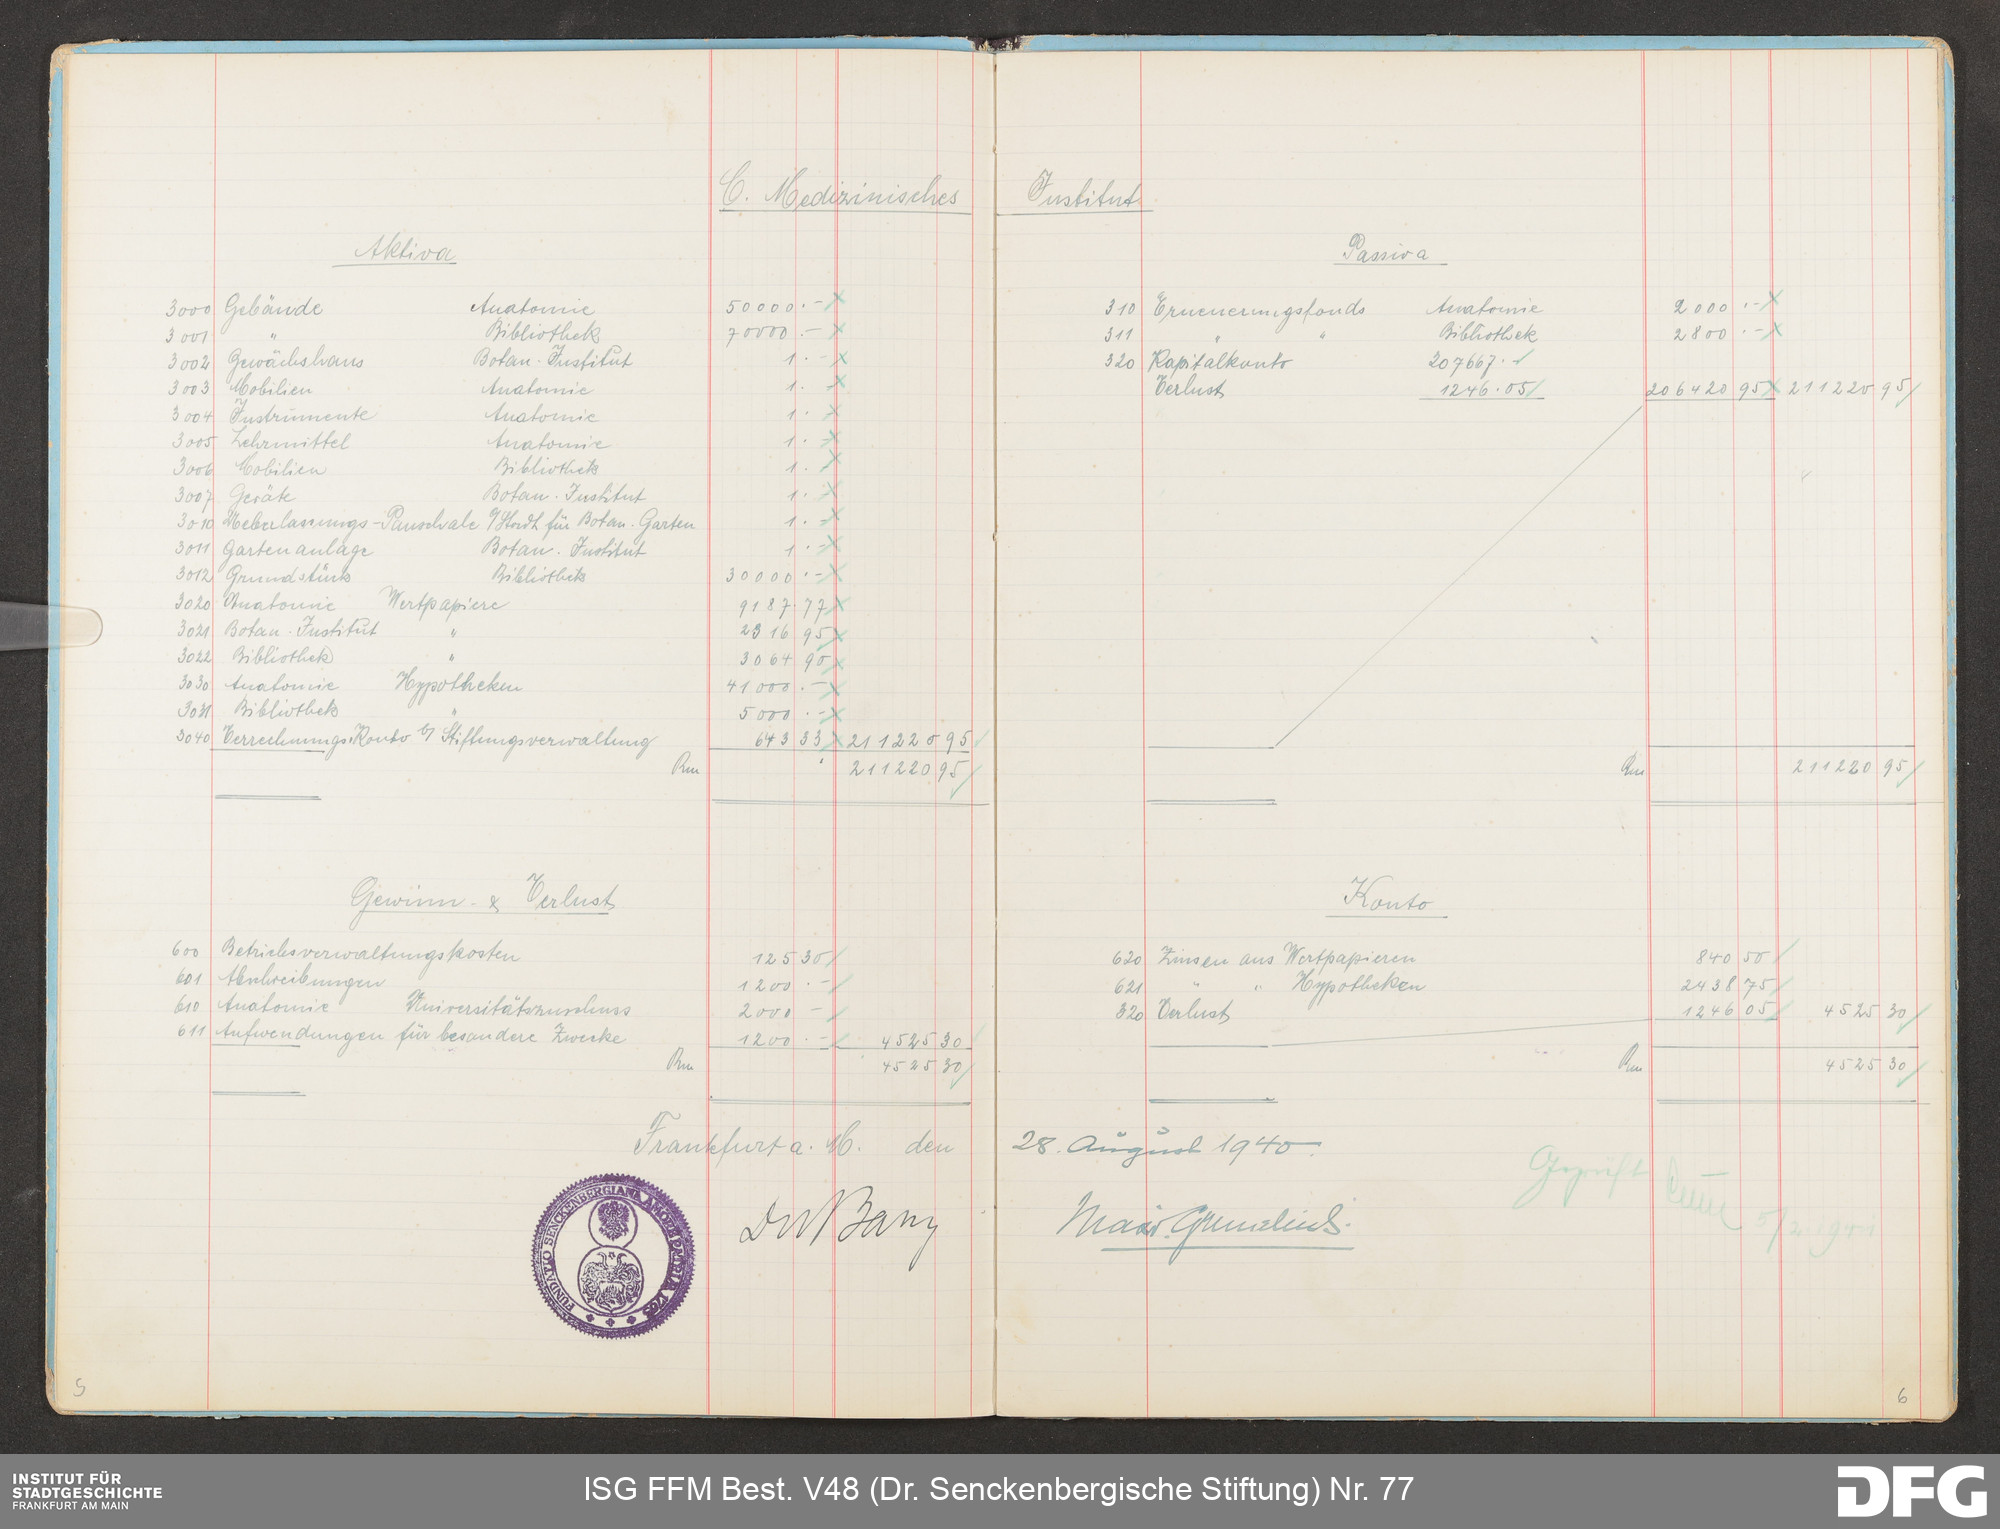 C. Medizinisches Institut
Aktiva
3000 Gebäude Anatomie 50000.-
3001 " Bibliothek 70000.-
3002 Gewächshaus Botan. Institut 1.-
3003 Mobilien Anatomie 1.-
3004 Instrumente Anatomie 1.-
3005 Lehrmittel Anatomie 1.-
3006 Mobilien Bibliothek 1.-
3007 Geräte Botan. Institut 1.-
3010 Ueberlassungs-Pauschale a/Stadt für Botan. Garten 1.-
3011 Gartenanlage Botan. Institut 1.-
3012 Grundstück Bibliothek 30000.-
3020 Anatomie Wertpapiere 9187.77
3021 Botan. Institut " 2316 95
3022 Bibliothek " 3064 90
3030 Anatomie Hypotheken 41000.-
3031 Bibliothek " 5000.-
3040 Verrechnungs-Konto b/ Stiftungsverwaltung 643 33 211220 95
Rm 211220 95
Gewinn- & Verlust
600 Betriebsverwaltungskosten 125 30
601 Abschreibungen 1200.-
610 Anatomie Universitätszuschuss 2000 -
611 Aufwendungen für besondere Zwecke 1200.- 4525 30
Rm 4525 30
Frankfurt a. M. den
FUNDATIO SENCKENBERGIANA AMORE PATRIAE 1763
5
Passiva
310 Erneuerungsfonds Anatomie 2000.-
311 " " Bibliothek 2800.-
320 Kapitalkonto 207667.-
Verlust 1246.05 206420 95 211220 95
Rm 211220 95
Konto
620 Zinsen aus Wertpapieren 840 50
621 " " Hypotheken 2438 75
320 Verlust 1246 05 4525 30
Rm 4525 30
28. August 1940.
Geprüft
5/2 1941
6
INSTITUT FÜR
STADTGESCHICHTE
FRANKFURT AM MAIN
ISG FFM Best. V48 (Dr. Senckenbergische Stiftung) Nr. 77
DFG